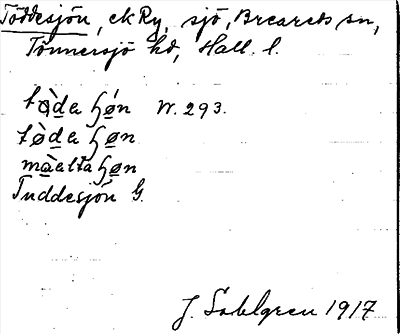 Töddesjön, ek Ry, sjö, Breareds sn,
Tönnersjö hd, Hall. l.
tø̀de ɧø̀n W. 293.
tø̀de ɧøn
mæ̀elta ɧøn
Tuddesjön G.
J. Sahlgren 1917